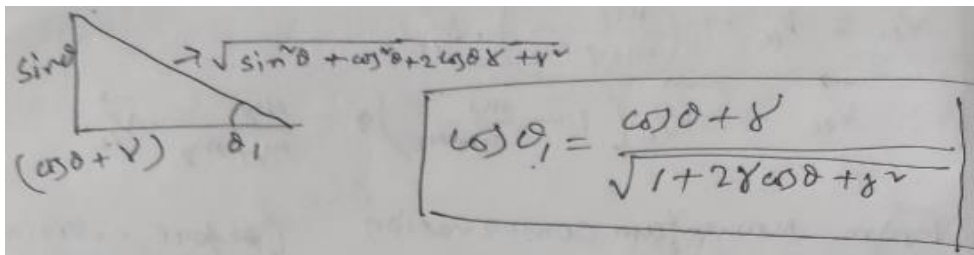 sinθ
→ √sin²θ + cos²θ + 2cosθγ + γ²
(cosθ + γ) θ₁
cosθ₁ = cosθ + γ / √1 + 2γcosθ + γ²